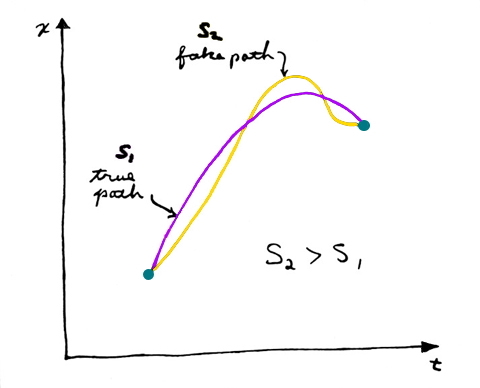 x
S₂
fake path
S₁
true
path
S₂ > S₁
t